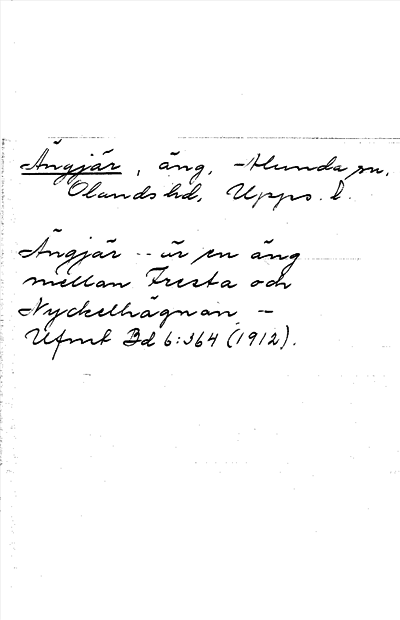 Ängjär, äng, Alunda sn,
Olands hd, Upps. l.
Ängjär -- är en äng
mellan Fresta och
Nyckelhägnan. --
Ufmt Bd 6:364 (1912).